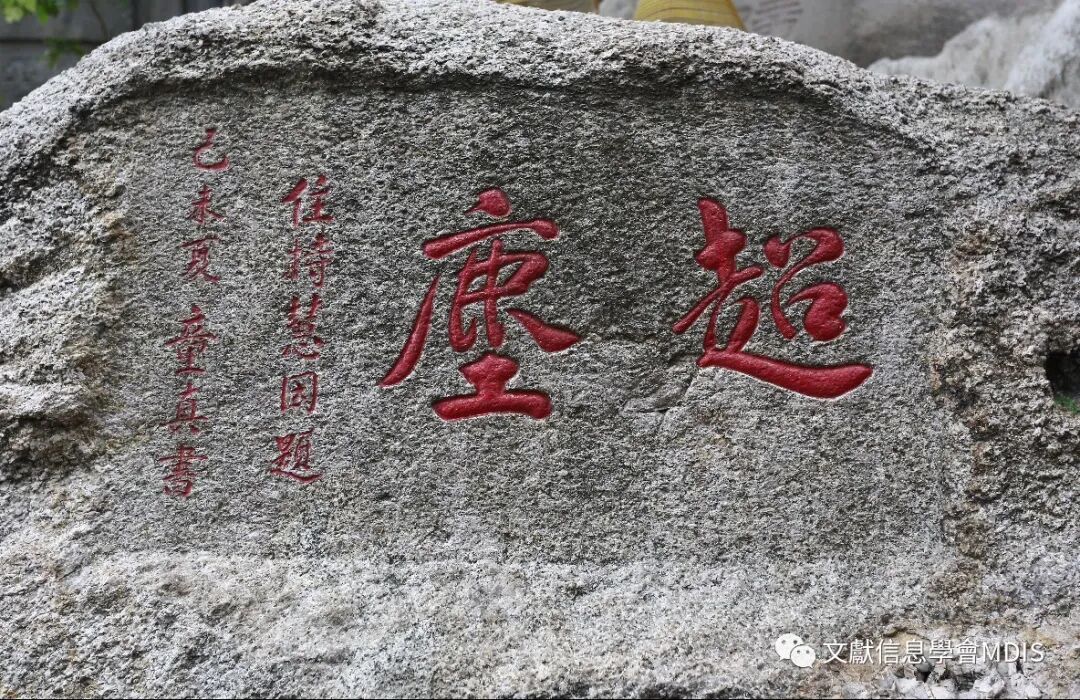 超塵
住持慧因題
己未夏童真書
文獻信息學會MDIS